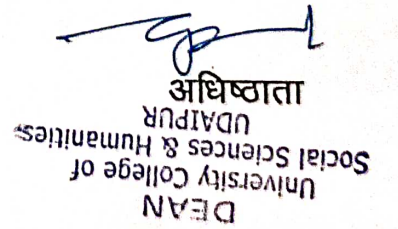 अधिष्ठाता
DEAN
University College of
Social Sciences & Humanities
UDAIPUR